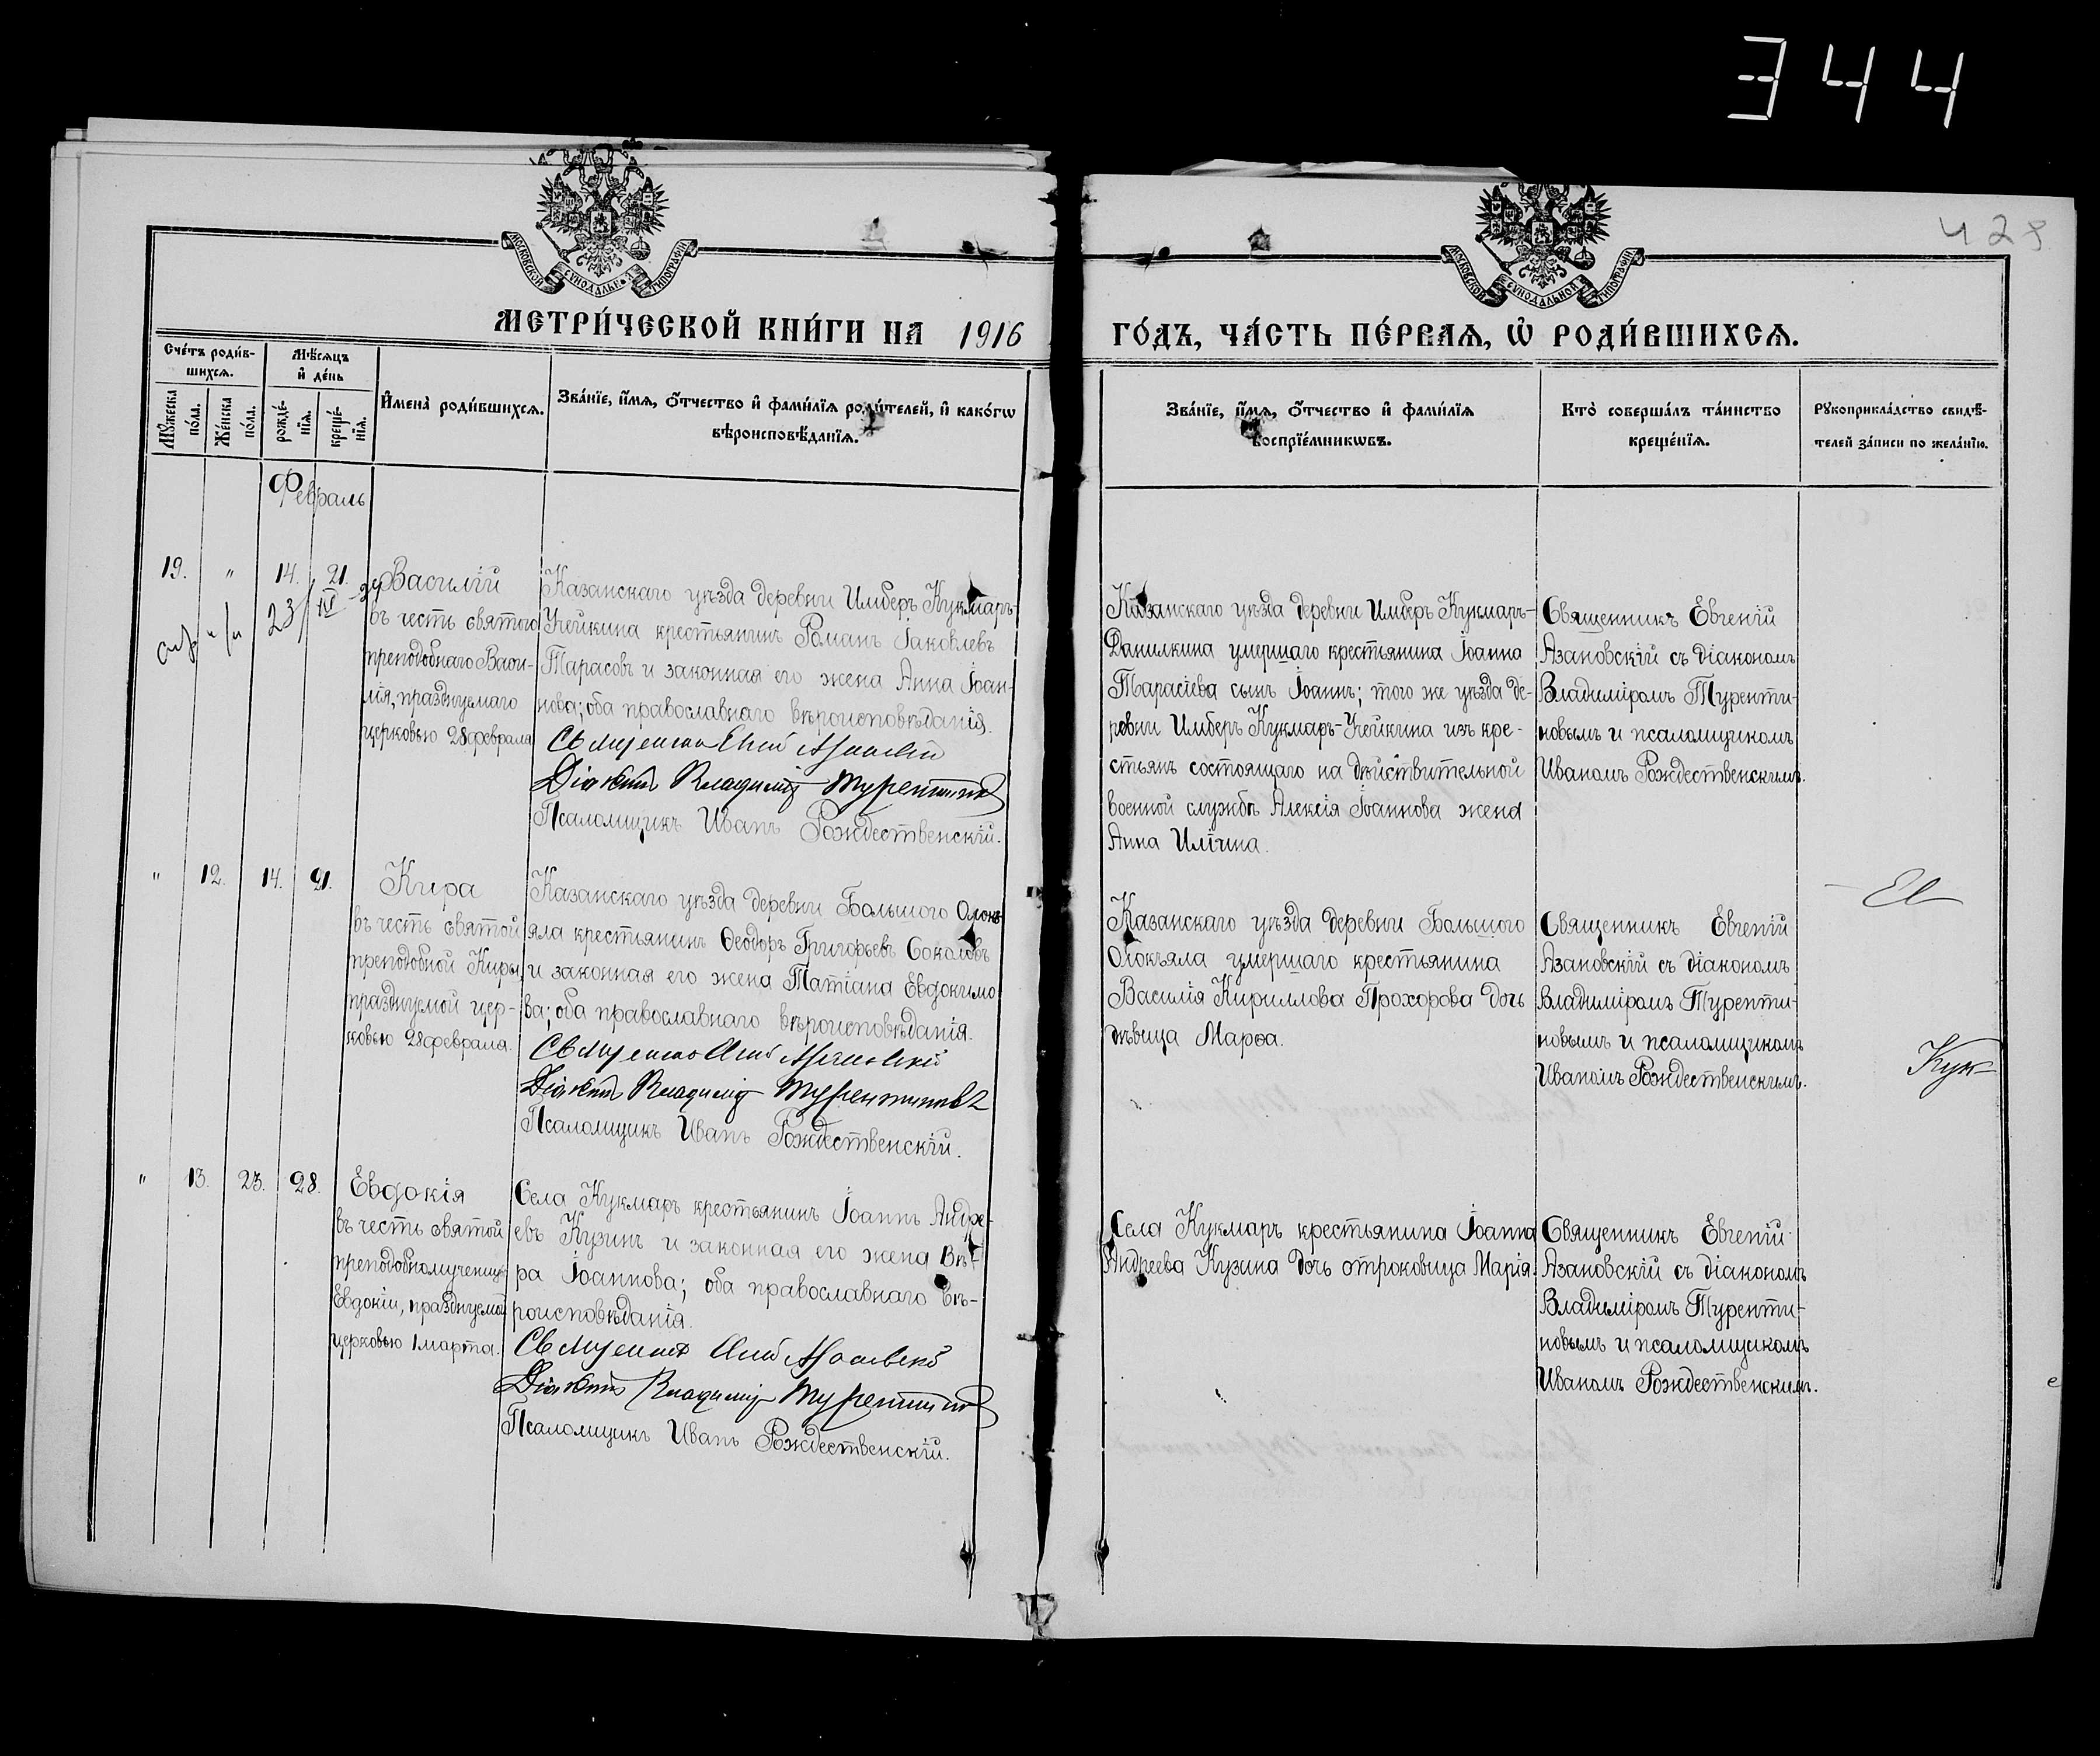 344
428
МОСКОВСКОЙ СѴНОДАЛЬНОЙ ТИПОГРАФІИ
МОСКОВСКОЙ СѴНОДАЛЬНОЙ ТИПОГРАФІИ
МЕТРИ́ЧЕСКОЙ КНИ́ГИ НА 1916 ГО́ДЪ, ЧА́СТЬ ПЕ́РВАѦ, Ѽ РОДИ́ВШИХСѦ.
Сче́тъ роди́в-
шихсѧ.
Мꙋ́жеска
по́ла.
Же́нска
по́ла.
Мѣ́сѧцъ
и҆ де́нь
рожде́-
нїѧ.
креще́-
нїѧ.
И҆мена̀ роди́вшихсѧ.
Зва́нїе, и҆́мѧ, ѻ҆́тчество и҆ фами́лїѧ роди́телей, и҆ како́гѡ
вѣроисповѣ́данїѧ.
Зва́нїе, и҆́мѧ, ѻ҆́тчество и҆ фами́лїѧ
воспрїе́мникѡвъ.
Кто̀ соверша́лъ та́инство
креще́нїѧ.
Рꙋкоприкла́дство свидѣ́-
телей за́писи по жела́нїю.
Февраль
19. " 14. 21.
23/IV
Василій
въ честь святого
преподобнаго Васи-
лія, празднуемаго
церковью 28 февраля
Казанскаго уѣзда деревни Имберъ Кукмаръ-
Учейкина крестьянинъ Романъ Іаковлевъ
Тарасовъ и законная его жена Анна Іоан-
нова; оба православнаго вѣроисповѣданія.
Діаконъ Владиміръ Турентиновъ
Псаломщикъ Иванъ Рождественскій.
Казанскаго уѣзда деревни Имберъ Кукмаръ-
Данилкина умершаго крестьянина Іоанна
Тарасіева сынъ Іоаннъ; того же уѣзда де-
ревни Имберъ Кукмаръ-Учейкина изъ кре-
стьянъ состоящаго на дѣйствительной
военной службѣ Алексія Іоаннова жена
Анна Илічна.
Священникъ Евгеній
Азановскій съ діакономъ
Владиміромъ Туренти-
новымъ и псаломщикомъ
Иваномъ Рождественскимъ.
" 12. 14. 21.
Кира
въ честь святой
преподобной Киры,
празднуемой цер-
ковью 28 февраля.
Казанскаго уѣзда деревни Большого Олокъ-
яла крестьянинъ Ѳеодоръ Григорьевъ Соколовъ
и законная его жена Татіана Евдокимо-
ва; оба православнаго вѣроисповѣданія.
Діаконъ Владиміръ Турентиновъ
Псаломщикъ Иванъ Рождественскій.
Казанскаго уѣзда деревни Большого
Олокъяла умершаго крестьянина
Василія Кириллова Прохорова дочь
дѣвица Марѳа.
Священникъ Евгеній
Азановскій съ діакономъ
Владиміромъ Туренти-
новымъ и псаломщикомъ
Иваномъ Рождественскимъ.
Кук
" 13. 23. 28.
Евдокія
въ честь святой
преподобномученицы
Евдокіи, празднуемой
церковью 1 марта.
Села Кукмаръ крестьянинъ Іоаннъ Андре-
евъ Кузинъ и законная его жена Вѣ-
ра Іоаннова; оба православнаго вѣ-
роисповѣданія.
Діаконъ Владиміръ Турентиновъ
Псаломщикъ Иванъ Рождественскій.
Села Кукмаръ крестьянина Іоанна
Андреева Кузина дочь отроковица Марія.
Священникъ Евгеній
Азановскій съ діакономъ
Владиміромъ Туренти-
новымъ и псаломщикомъ
Иваномъ Рождественскимъ.